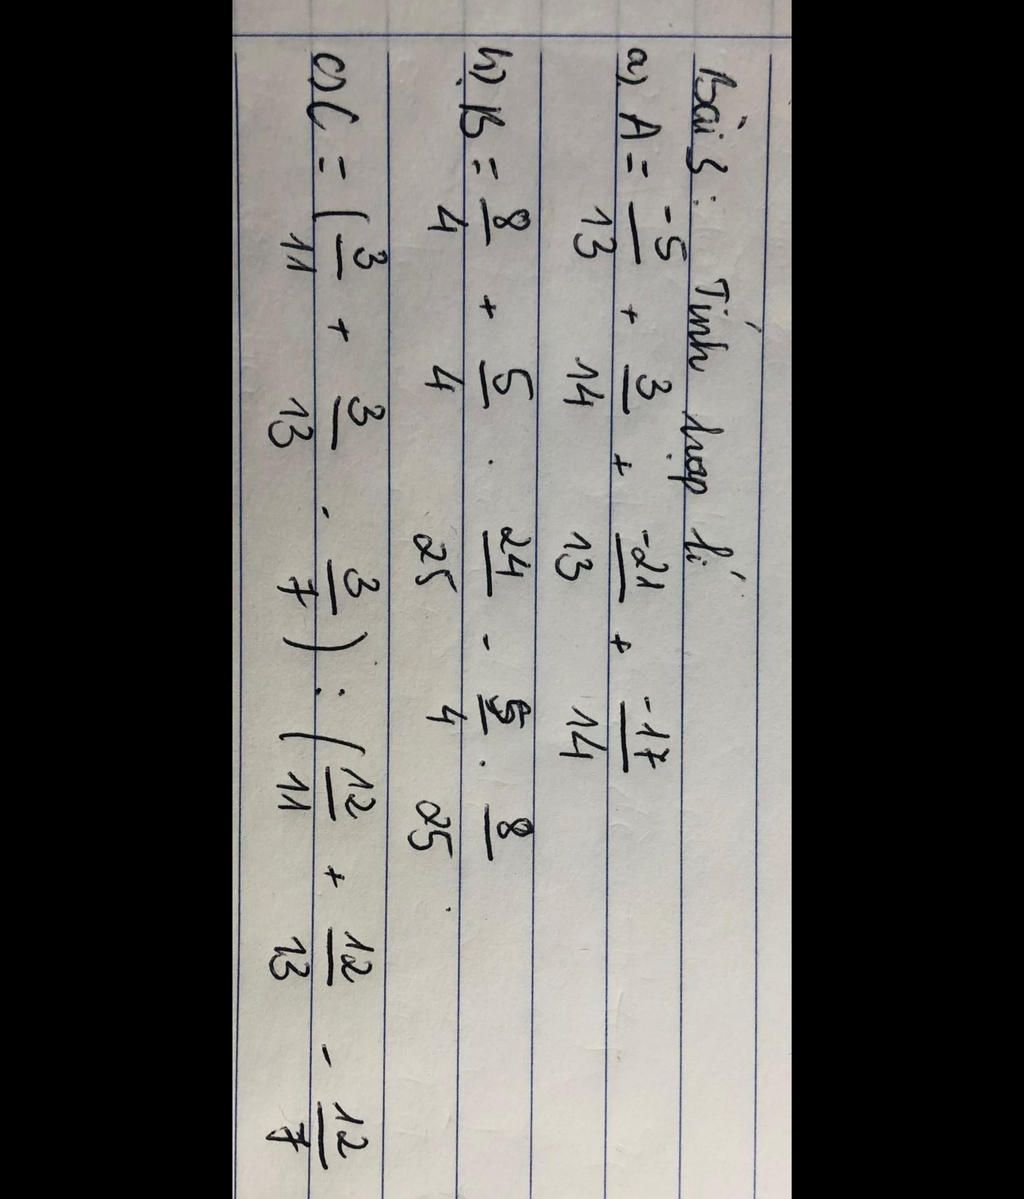 Bài 3: Tính hợp lí
a) A = -5/13 + 3/14 + -21/13 + -17/14
b) B = 8/4 + 5/4 . 24/25 - 5/4 . 8/25
c) C = (3/11 + 3/13 - 3/7) : (12/11 + 12/13 - 12/7